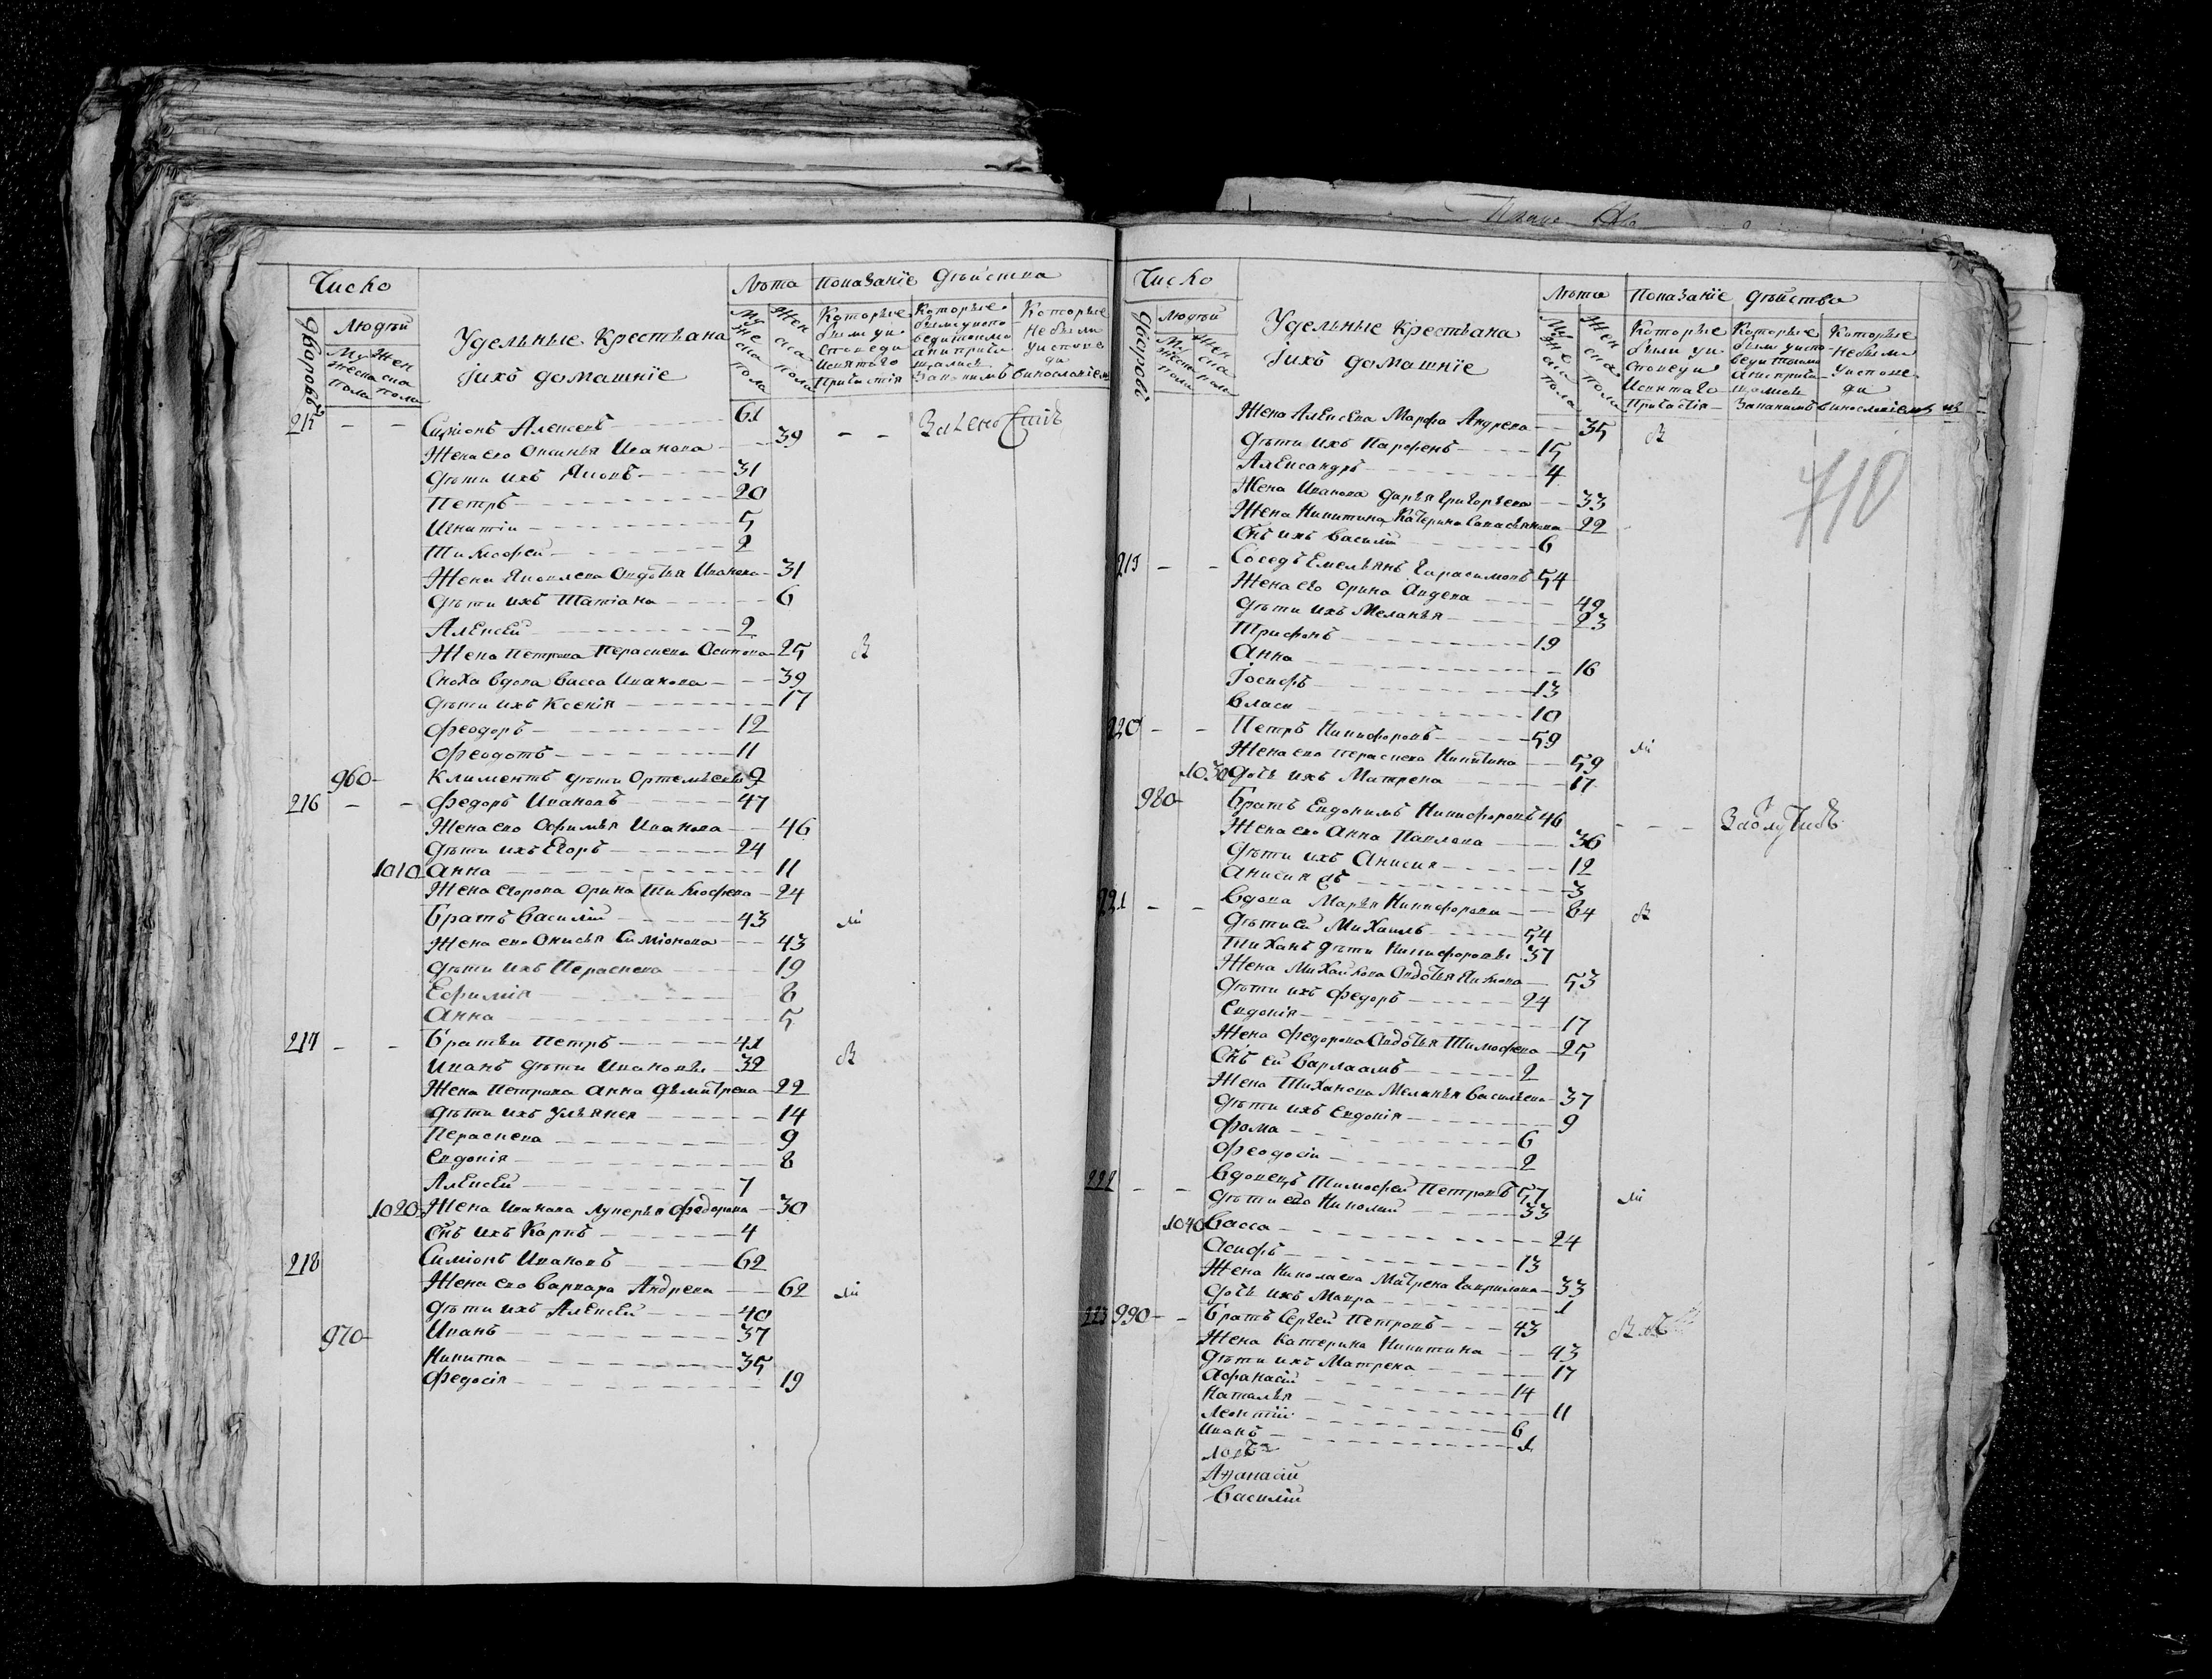 Число
Людѣй
дворовъ
Мужеска пола
Женска пола
Удельные Крестьяна
Iихъ домашнїе
Лѣта
Мужеска пола
Женска пола
Показанїе дѣйства
Которые были у исповеди и святого причастїя
Которые были у исповеди токмо а не причащались
Которые не были у исповеди
215 - - Симїонъ Алексеевъ 61
Жена ево Оксинья Иванова 39
дѣти ихъ Яковъ 31
Петръ 20
Игнатiи 5
Тимофеи 2
Жена Яковлева Овдотья Иванова 31
дѣти ихъ Татiана 6
Алексеи 2
Жена Петрова Пераскева Осипова 25
Сноха вдова Васса Иванова 39
дѣти ихъ Ксенiя 17
Феодоръ 12
Феодотъ 11
960 Климентъ дѣти Ортемьевы 9
216 - - Федоръ Ивановъ 47
Жена ево Офимья Иванова 46
дѣти ихъ Егоръ 24
1010 Анна 11
Жена Егорова Орина Тимофеева 24
Братъ Василiй 43
Жена ево Онисья Симiонова 43
дѣти ихъ Пераскева 19
Ефимiя 8
Анна 5
217 - - Братья Петръ 41
Иванъ дѣти Ивановы 32
Жена Петрова Анна Дьмитрева 22
дѣти ихъ Ульянея 14
Пераскева 9
Евдокiя 8
Алексеи 7
1020 Жена Иванова Лукерья Федорова 30
Снъ ихъ Карпъ 4
218 Симiонъ Ивановъ 62
Жена ево Варвара Андреева 62
дѣти ихъ Алексеи 40
970 Иванъ 37
Никита 35
Федосiя 19
Число
Людѣй
дворовъ
Мужеска пола
Женска пола
Удельные Крестьяна
Iихъ домашнїе
Лѣта
Мужеска пола
Женска пола
Показанїе дѣйства
Которые были у исповеди и святого причастїя
Которые были у исповеди токмо а не причащались
Которые не были у исповеди
710
Жена Алексеева Марфа Андрева 35
дѣти ихъ Парфенъ 15
Александръ 4
Жена Иванова Дарья Григорьева 33
Жена Никитина Катерина 22
Снъ ихъ Василiй 6
219 - - Соседъ Емельянъ Гарасимовъ 54
Жена ево Орина 49
дѣти ихъ Меланья 23
Трифонъ 19
Анна 16
Iосифъ 13
Власи 10
220 - - Петръ Никифоровъ 59
Жена ево Пераскева Никитина 59
1030 дочь ихъ Матрена 17
980 Братъ Евдокимъ Никифоровъ 46
Жена ево Анна Павлова 36
дѣти ихъ Анисия 12
3
221 - - Вдова Марья Никифорова 84
дѣти еи Михаилъ 54
Тиханъ дѣти Никифоровы 37
Жена Михайлова Овдотья 53
дѣти ихъ Федоръ 24
Евдокiя 17
Жена Федорова Овдотья Тимофева 25
Снъ еи Варлаамъ 2
Жена Тиханова Меланья Васильева 37
дѣти ихъ Евдокiя 9
Фома 6
Феодосiи 2
222 - - Вдовецъ Тимофеи Петровъ 57
дѣти ево Николаи 33
1040 Васса 24
Осифъ 13
Жена Николаева Матрена Гаврилова 33
дочь ихъ Мавра 1
223 990 - - Братъ Сергеи Петровъ 43
Жена Катерина Никитина 43
дѣти ихъ Матрена 17
Афанасiй 14
Наталья 11
Леонтiи 6
Иванъ 1
Афанасiи
Василiй